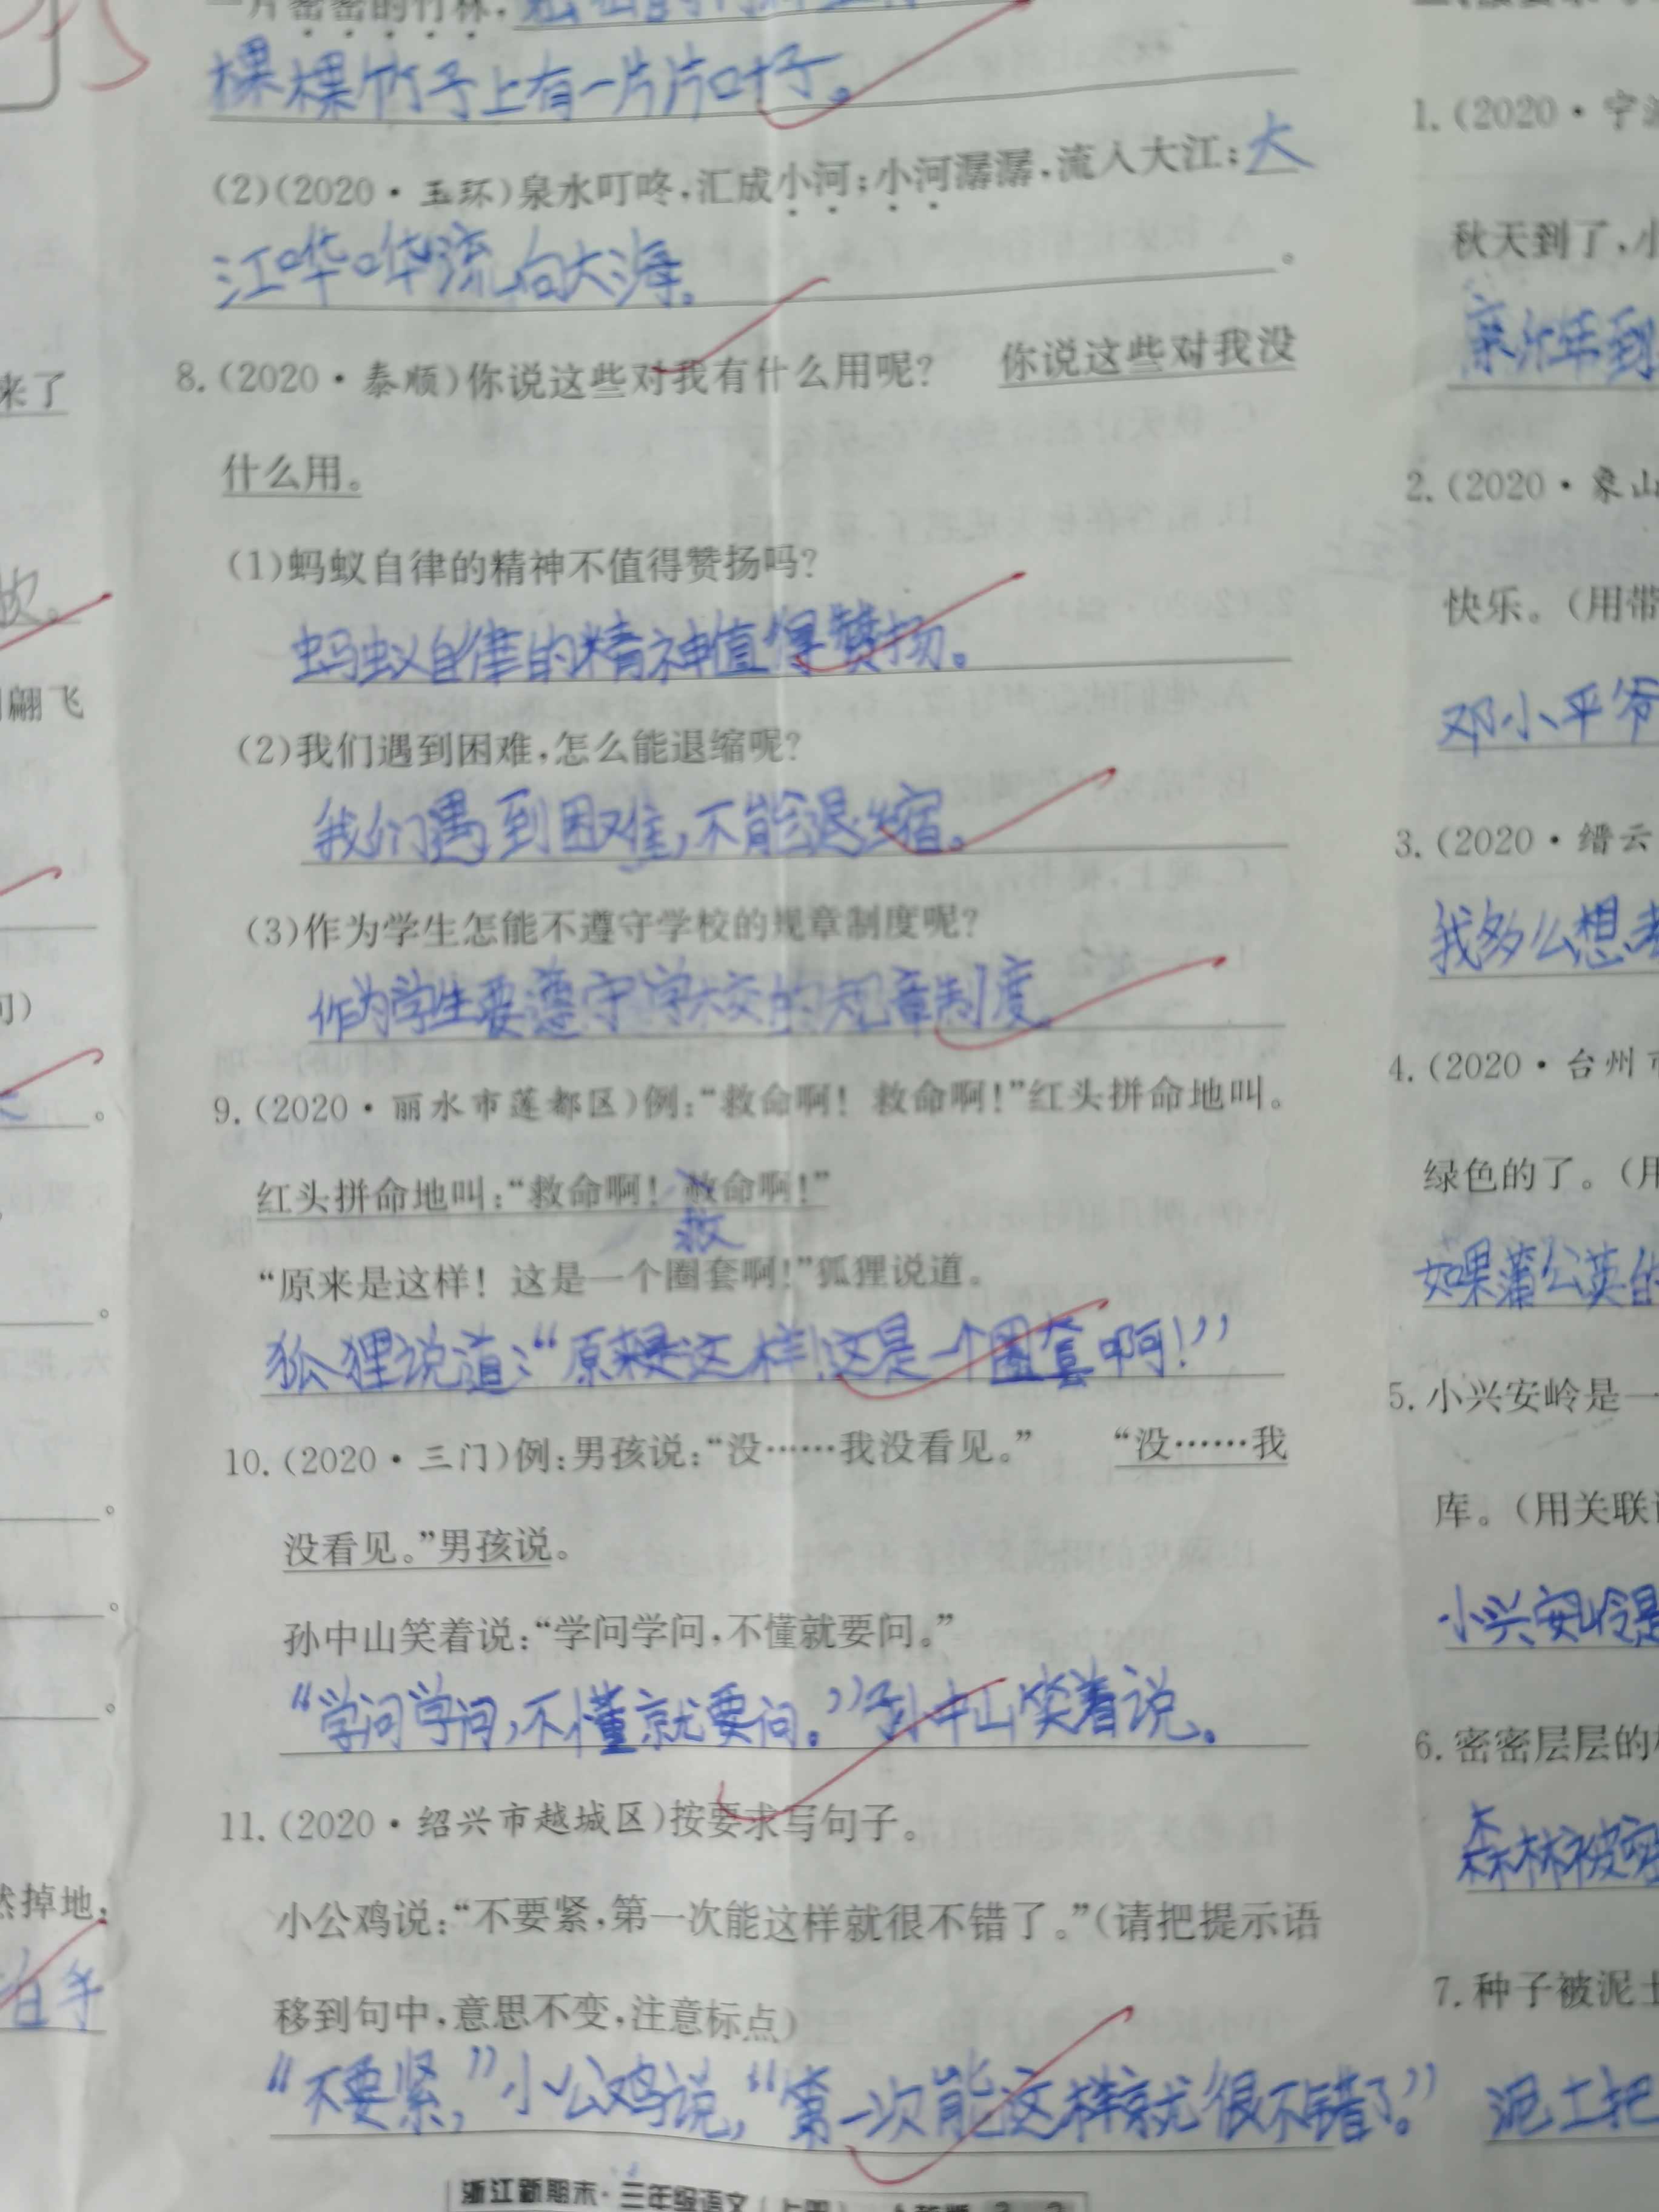 一片密密的竹林，
棵棵竹子上有一片片叶子。
(2)(2020·玉环)泉水叮咚，汇成小河；小河潺潺，流入大江；大
江哗哗流向大海。
8.(2020·泰顺)你说这些对我有什么用呢？ 你说这些对我没
什么用。
(1)蚂蚁自律的精神不值得赞扬吗？
蚂蚁自律的精神值得赞扬。
(2)我们遇到困难，怎么能退缩呢？
我们遇到困难，不能退缩。
(3)作为学生怎能不遵守学校的规章制度呢？
作为学生要遵守学校的规章制度
9.(2020·丽水市莲都区)例：“救命啊！救命啊！”红头拼命地叫。
红头拼命地叫：“救命啊！救命啊！”
救
“原来是这样！这是一个圈套啊！”狐狸说道。
狐狸说道：“原来是这样！这是一个圈套啊！”
10.(2020·三门)例：男孩说：“没……我没看见。” “没……我
没看见。”男孩说。
孙中山笑着说：“学问学问，不懂就要问。”
“学问学问，不懂就要问。”孙中山笑着说。
11.(2020·绍兴市越城区)按要求写句子。
小公鸡说：“不要紧，第一次能这样就很不错了。”(请把提示语
移到句中，意思不变，注意标点)
“不要紧，”小公鸡说，“第一次能这样就很不错了。”
浙江新期末·三年级语文(上册)
来了
翩飞
然掉地，
1.(2020·宁
秋天到了，小
2.(2020·象山
快乐。(用带
邓小平爷
3.(2020·缙云
我多么想
4.(2020·台州市
绿色的了。(用
如果蒲公英的
5.小兴安岭是一
库。(用关联
小兴安岭是
6.密密层层的
森林被
7.种子被泥土
泥土把